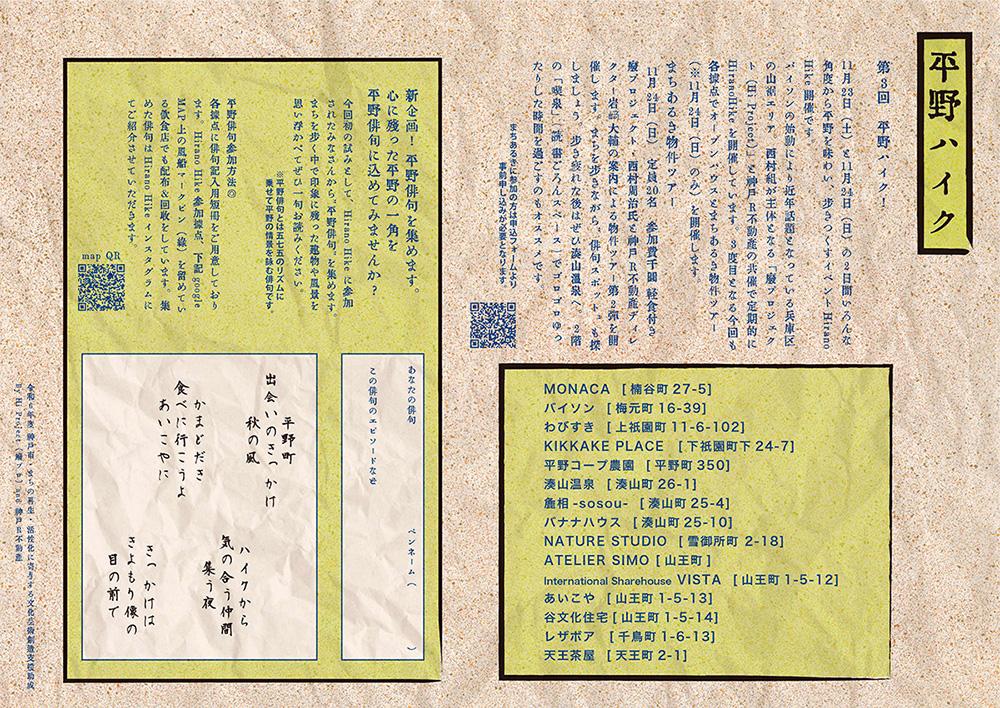 平野ハイク
第3回 平野ハイク!
11月23日(土)と11月24日(日)の2日間いろんな
角度から平野を味わい、歩きつくすイベントHirano
Hike 開催です
バイソンの始動により近年話題となっている兵庫区
の山裾エリア。西村組が主体となる「廢プロジェク
ト(Hi Project)」と神戸R不動産の共催で定期的に
HiranoHikeを開催しています。3度目となる今回も
各拠点でオープンハウスとまちあるき物件ツアー
(※11月24日(日)のみ)を開催します。
まちあるき物件ツアー
11月24日(日) 定員20名 参加費千圓 軽食付き
廢プロジェクト 西村周治氏と神戸R不動産ディレ
クター岩崎大輔の案内による物件ツアー第2弾を開
催します。まちを歩きながら、俳句スポット、も探
しましょう 歩き疲れた後はぜひ湊山温泉へ。2階
の「喫泉」(読書ごろんスペース)でゴロゴロゆっ
たりした時間を過ごすのもオススメです
まちあるきに参加の方は申込フォームより
事前申し込みが必要となります
MONACA [楠谷町 27-5]
バイソン [梅元町 16-39]
わびすき [上祇園町 11-6-102]
KIKKAKE PLACE [下祇園町下 24-7]
平野コープ農園 [平野町 350]
湊山温泉 [湊山町 26-1]
麁相 -sosou- [湊山町 25-4]
バナナハウス [湊山町 25-10]
NATURE STUDIO [雪御所町 2-18]
ATELIER SIMO [山王町]
International Sharehouse VISTA [山王町 1-5-12]
あいこや [山王町 1-5-13]
谷文化住宅 [山王町 1-5-14]
レザボア [千鳥町 1-6-13]
天王茶屋 [天王町 2-1]
新企画!平野俳句を集めます。
心に残った平野の一角を
平野俳句に込めてみませんか?
今回初の試みとして、Hirano Hike に参加
されたみなさんから、平野俳句、を集めます。
まちを歩く中で印象に残った建物や風景を
思い浮かべてぜひ一句お読みください。
※平野俳句とは五七五のリズムに
乗せて平野の情景を詠む俳句です。
平野俳句参加方法◎
各拠点に俳句記入用短冊をご用意しており
ます。Hirano Hike 参加拠点、下記 google
MAP上の風船マークピン(緑)を留めてい
る飲食店でも配布&回収をしています。集
めた俳句は Hirano Hike インスタグラムに
てご紹介させていただきます。
map QR
あなたの俳句
この俳句のエピソードなぞ
ペンネーム( )
平野町
秋の風
出会いのきっかけ
かまどださ
食べに行こうよ
あいこやに
ハイクから
気の合う仲間
集う夜
きっかけは
きよもり像の
目の前で
令和6年度 神戸市 まちの再生・活性化に寄与する文化芸術創造支援助成
By Hi Project(廢プロ)and 神戸R不動産